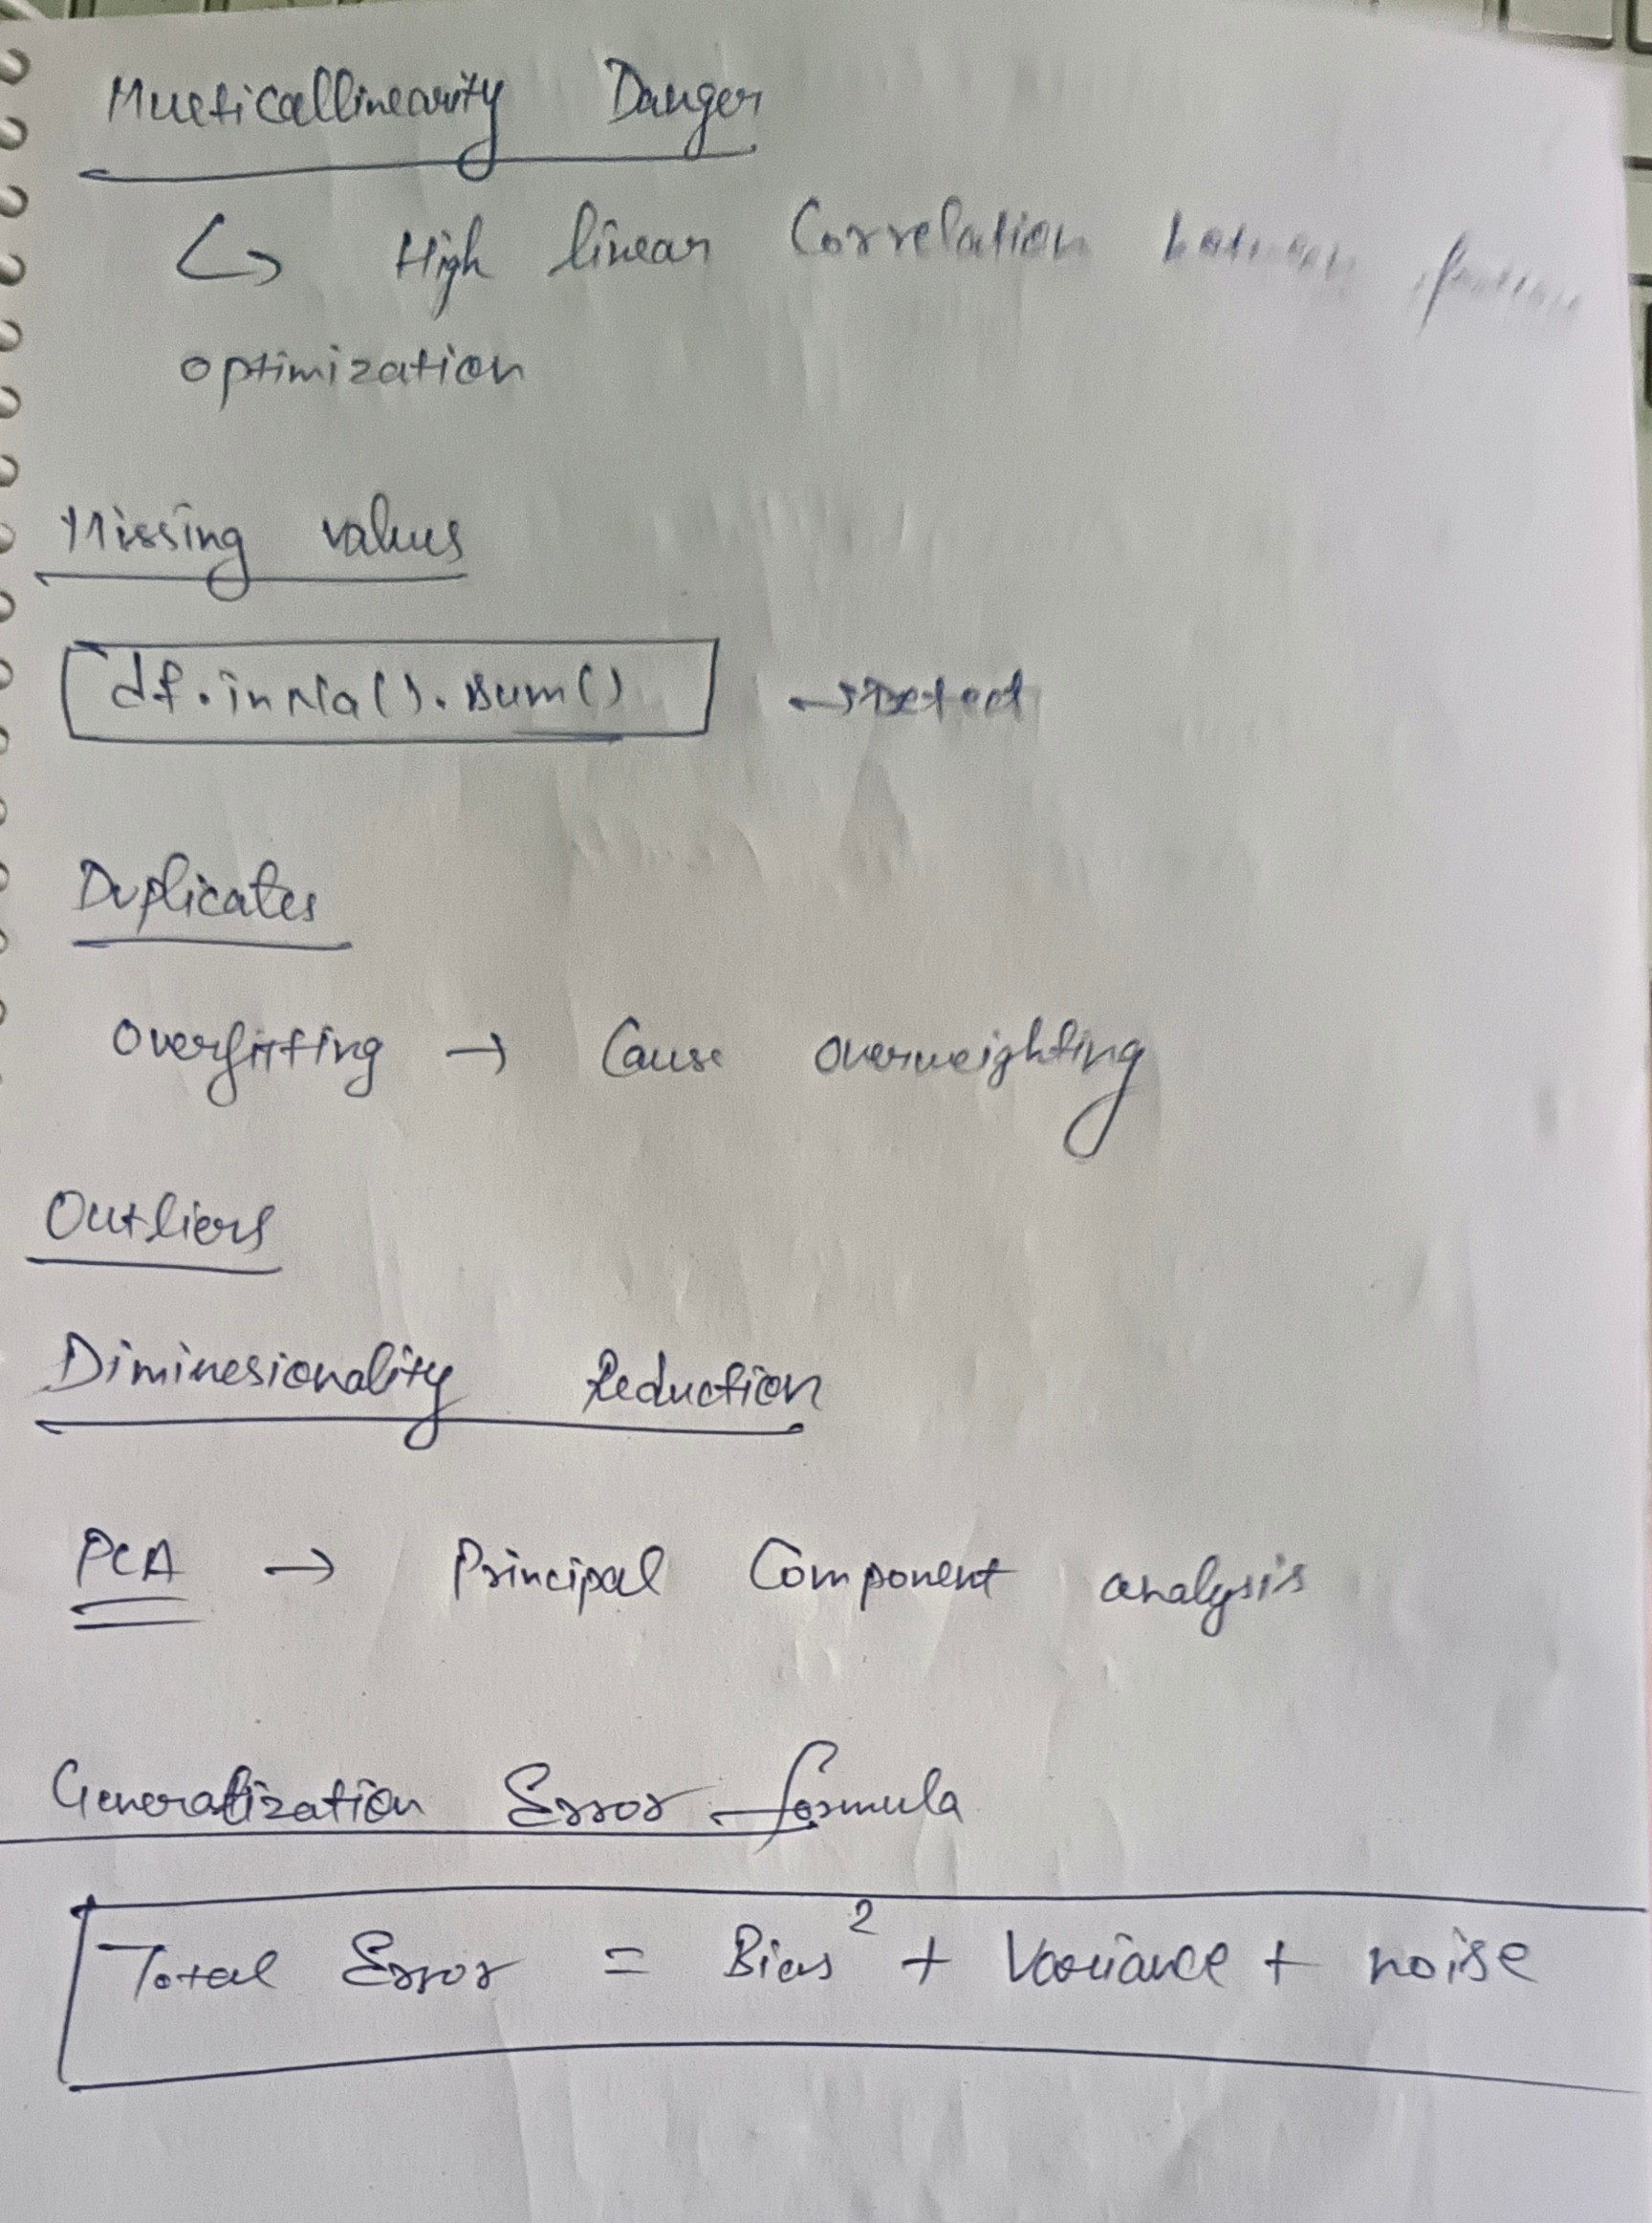 Multicallinearity Danger
↳ High linear Correlation between
optimization
Missing values
df.inNa().sum() → Detect
Duplicates
Overfitting → Cause overweighting
Outliers
Diminesionality Reduction
PCA → Principal Component analysis
Generalization Error formula
Total Error = Bias² + Variance + noise